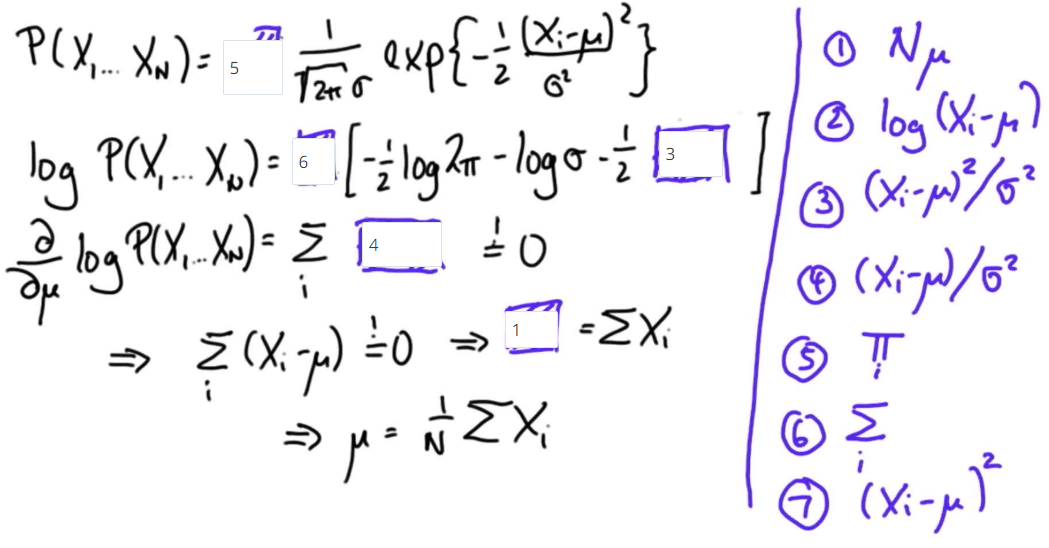 P(X₁,... X_N) = 5 1/√2π σ exp{-1/2 (Xᵢ-μ)²/σ²}
log P(X₁... X_N) = 6 [-1/2 log 2π - log σ - 1/2 3 ]
∂/∂μ log P(X₁...X_N) = Σᵢ 4 =! 0
⇒ Σᵢ (Xᵢ-μ) =! 0 ⇒ 1 = ΣXᵢ
⇒ μ = 1/N Σ Xᵢ
① Nμ
② log(Xᵢ-μ)
③ (Xᵢ-μ)²/σ²
④ (Xᵢ-μ)/σ²
⑤ ∏ᵢ
⑥ Σᵢ
⑦ (Xᵢ-μ)²